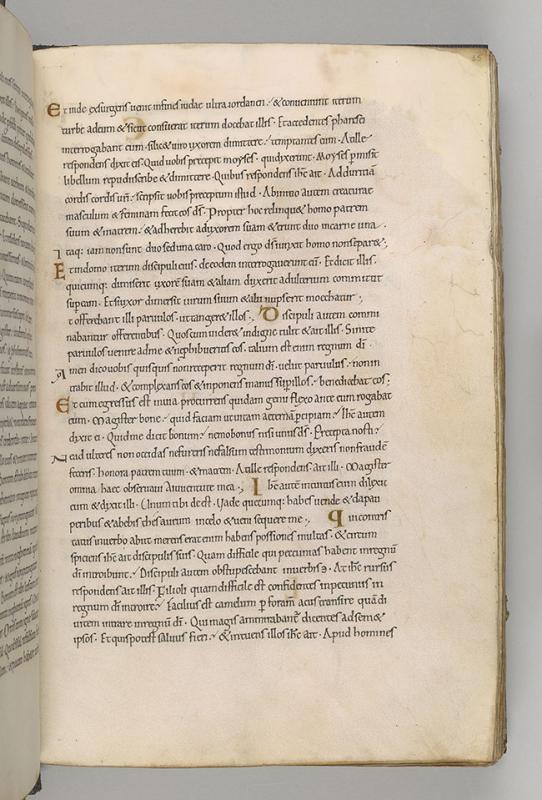 Et inde exsurgens uenit infines iudae ultra iordanen. & conueniunt iterum
turbe adeum & sicut consueuerat iterum docebat illos. Et accedentes pharisei
interrogabant eum. si lic& uiro uxorem dimittere. temptantes eum. At ille
respondens dixit eis. Quid uobis precepit moyses. qui dixerunt. Moyses pmisit
libellum repudii scribere & dimittere. Quibus respondens ihc ait. Adduritiā
cordis uri. scripsit uobis preceptum istud. Abinitio autem creaturae
masculum & feminam fecit eos ds. Propter hoc relinqu& homo patrem
suum & matrem. & adherebit aduxorem suam & erunt duo incarne una.
Itaq: iam nonsunt duo sed una caro. Quod ergo ds iunxit homo nonsepar&.
Et indomo iterum discipuli eius. de eodem interrogauerunt eū. Et dicit illis.
quicumq: dimiserit uxorē suam & aliam duxerit adulterium committit
sup eam. Et si uxor dimiserit uirum suum & alii nupserit moechatur.
& offerebant illi paruulos. ut tanger& illos. Discipuli autem commi
nabantur offerentibus. Quos cum uider& indigne tulit & ait illis. Sinite
paruulos uenire adme & ne phibueritis eos. talium est enim regnum di.
Amen dico uobis quisquis non receperit regnum di. uelut paruulus. non in
trabit illud. & complexans eos & imponens manus sup illos. benedicebat eos.
Et cum egressus est inuia procurrens quidam genu flexo ante eum rogabat
eum. Magister bone. quid faciam ut uitam aeternā pcipiam. Ihc autem
dixit ei. Quid me dicit bonum. nemo bonus nisi unus ds. Precepta nosti.
Ne adulteres non occidas ne fureris ne falsum testimonium dixeris non fraudē
feceris. honora patrem tuum & matrem. At ille respondens ait illi. Magister
omnia haec obseruaui Aiuuentute mea. Ihc autē intuitus eum dilexit
eum & dixit illi. Unum tibi deest. Uade quecumq: habes uende & da pau
peribus & habebis thesaurum incelo & ueni sequere me. Qui contris
tatus inuerbo abiit merens erat enim habens possiones multas. & circum
spiciens ihc ait discipulis suis. Quam difficile qui pecunias habent inregnū
di introibunt. Discipuli autem obstupescebant inuerbis. At ihc rursus
respondens ait illis. Filioli quam difficile est confidentes inpecuniis in
regnum di introire. Facilius est camelum p foramen acus transire quā di
uitem intrare inregnū di. Qui magis ammirabant dicentes adsem&
ipsos. Et quis potest saluus fieri. & intuens illos ihc ait. Apud homines